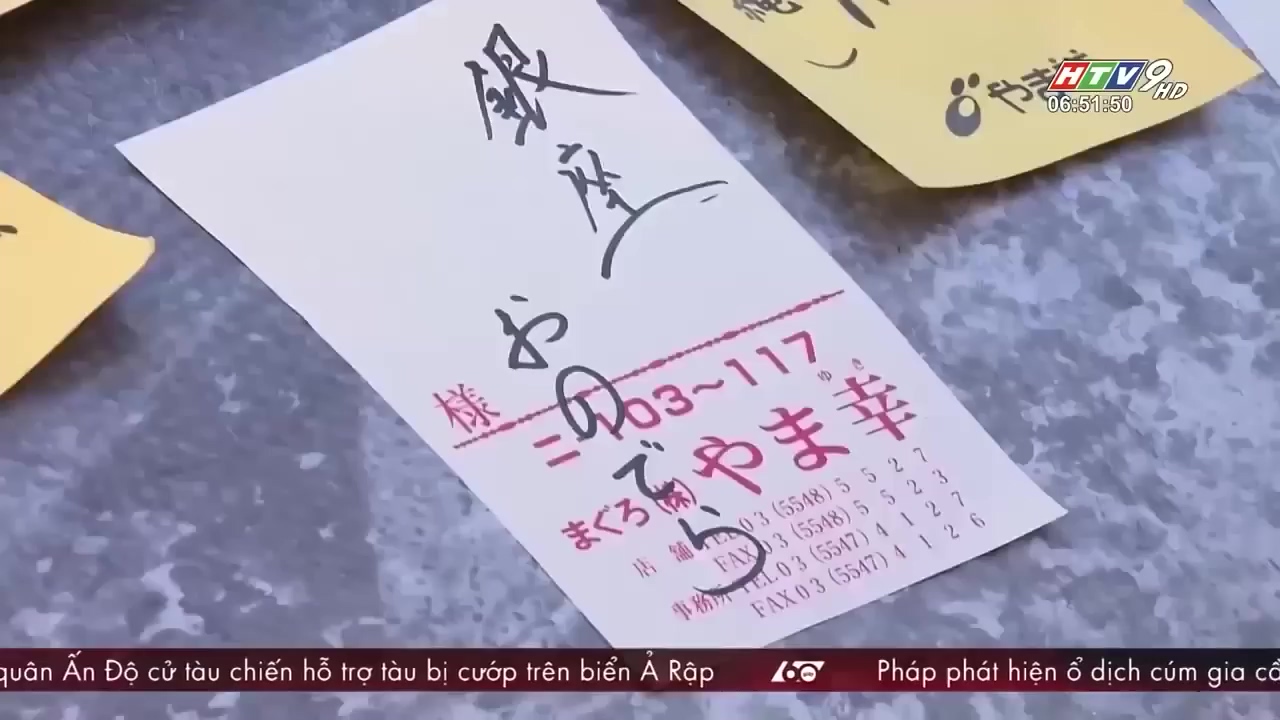 銀座
おのでら
様
ニ-103~117
まぐろ(株)やま幸
ゆき
店舗 TEL 03 (5548) 5527
FAX 03 (5548) 5523
事務所 TEL 03 (5547) 4127
FAX 03 (5547) 4126
HTV9 HD
06:51:50
quân Ấn Độ cử tàu chiến hỗ trợ tàu bị cướp trên biển Ả Rập
60
Pháp phát hiện ổ dịch cúm gia cầ